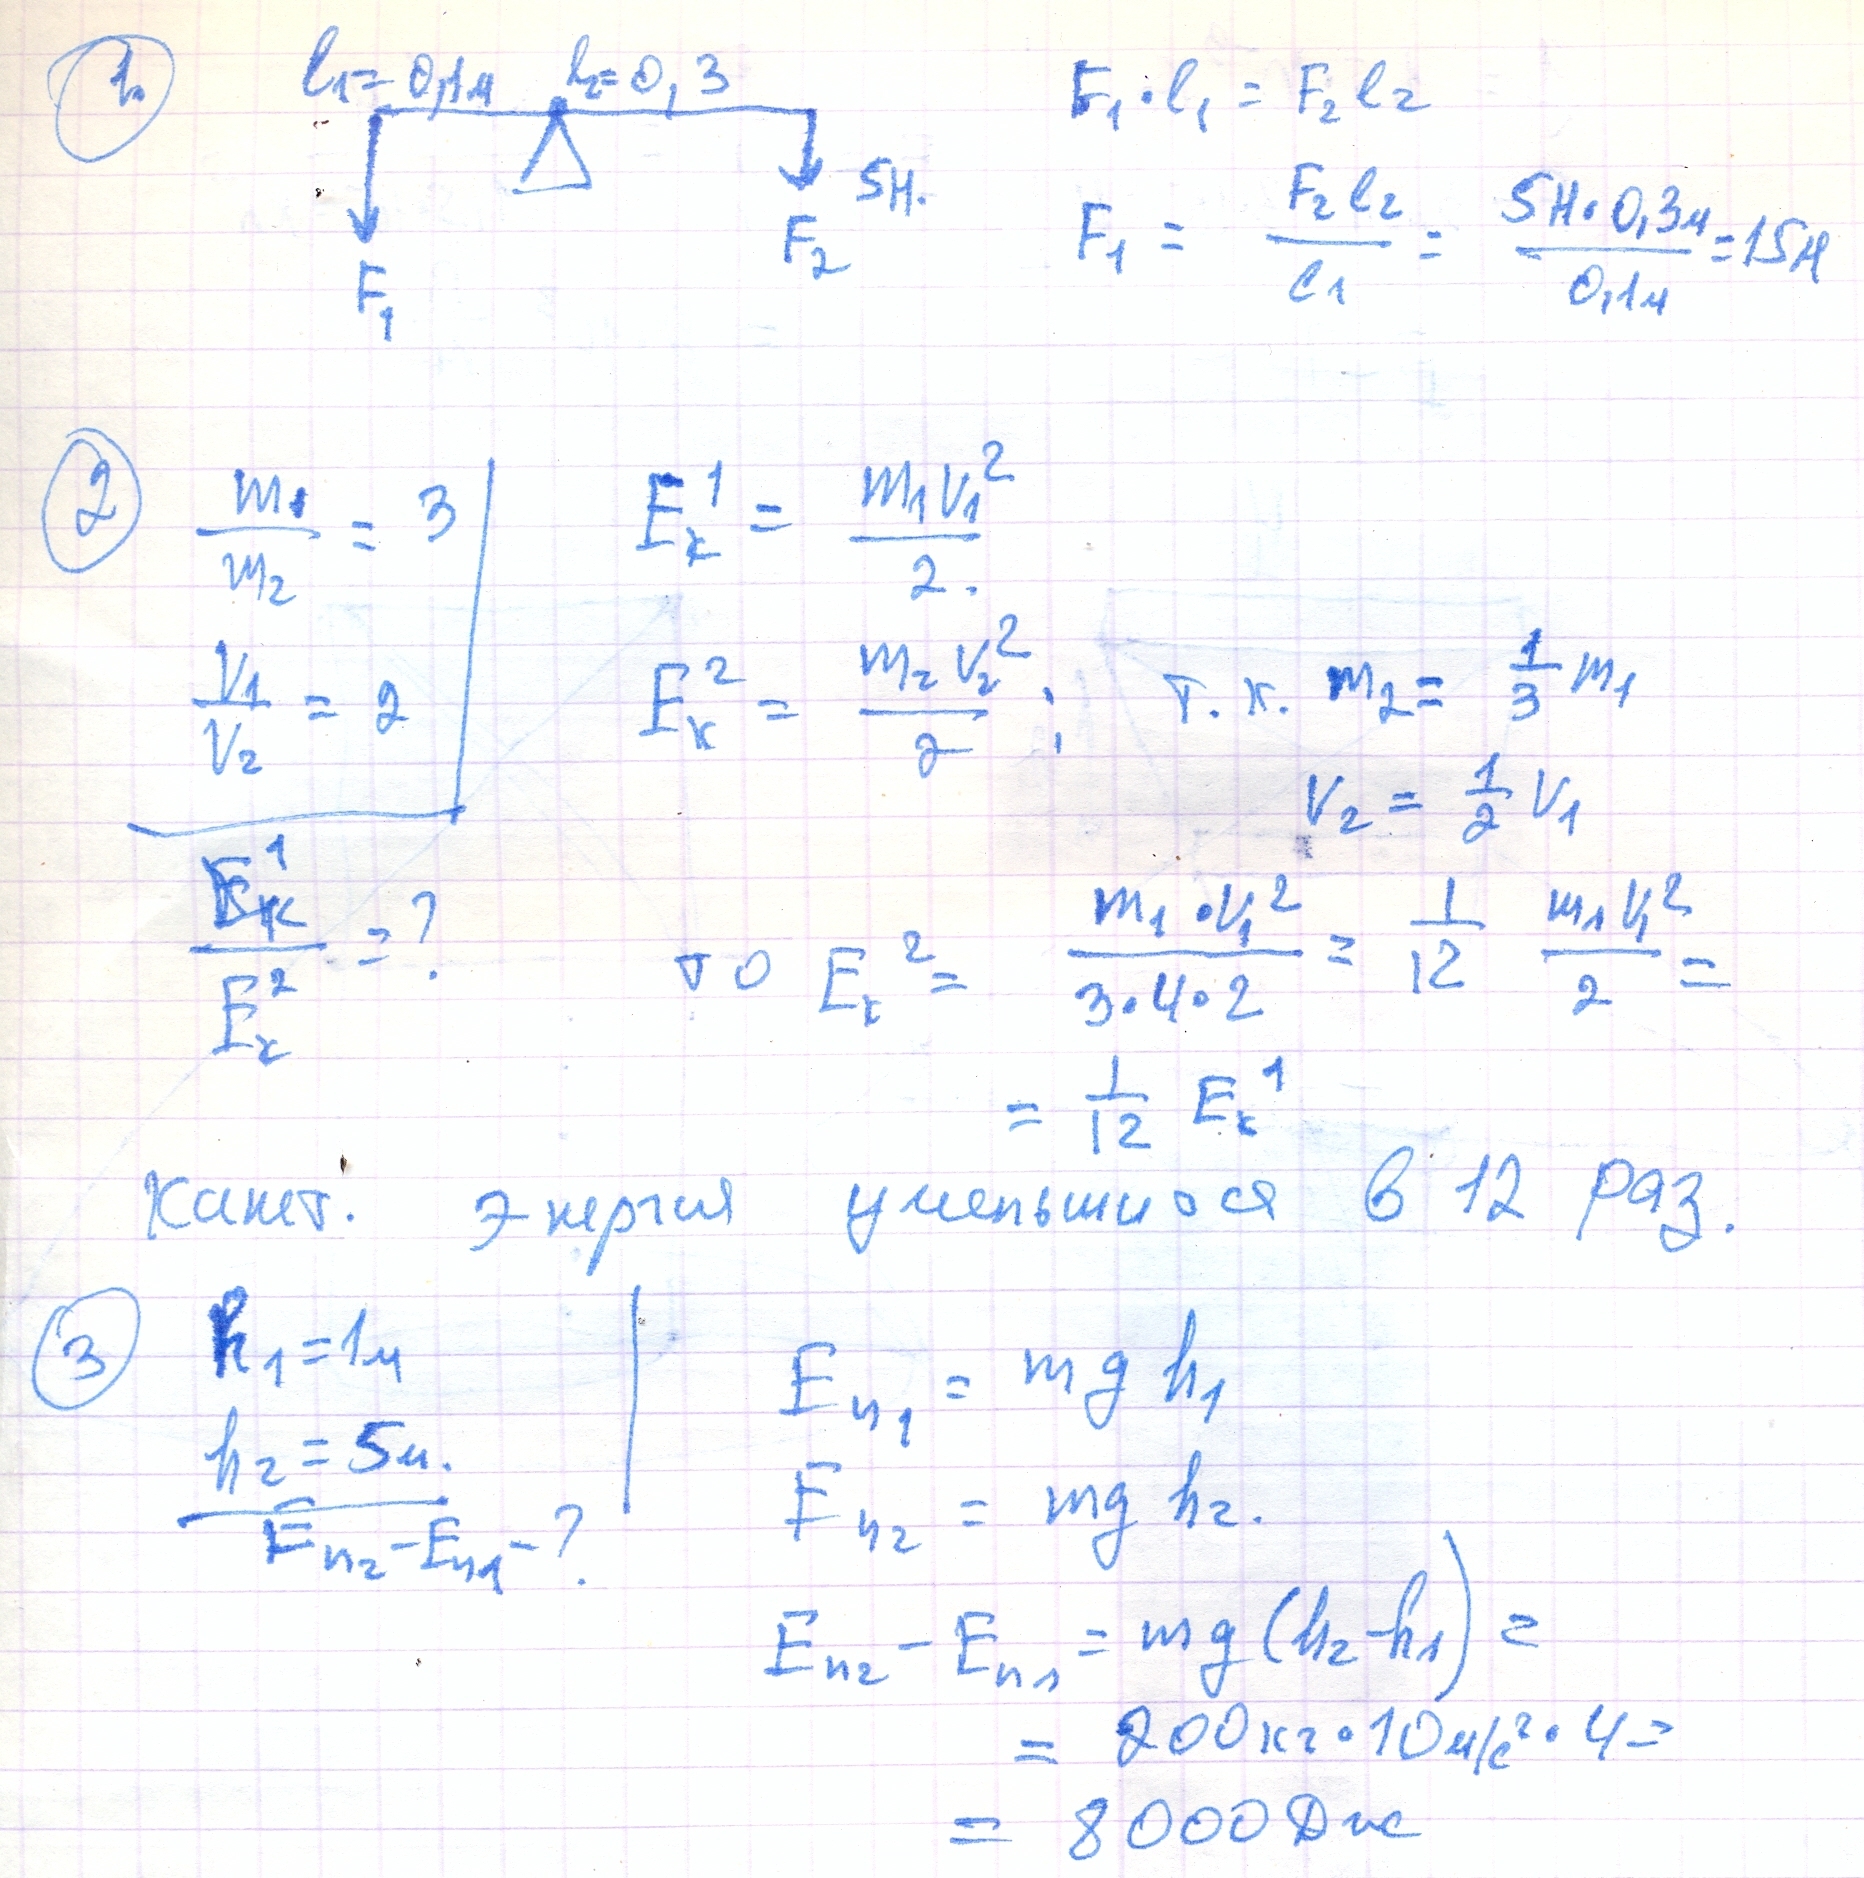 1.
l₁=0,1м l₂=0,3
F₁·l₁ = F₂l₂
5Н.
F₁
F₂
F₁ = F₂l₂/l₁ = 5Н·0,3м/0,1м = 15Н
2
m₁/m₂ = 3
V₁/V₂ = 2
Eк¹/Eк² = ?
Eк¹ = m₁V₁²/2.
Eк² = m₂V₂²/2 ; т.к. m₂ = 1/3 m₁
V₂ = 1/2 V₁
то Eк² = m₁·V₁²/3·4·2 = 1/12 m₁V₁²/2 =
= 1/12 Eк¹
Кинет. энергия уменьшится в 12 раз.
3
h₁=1м
h₂=5м.
Eп₂-Eп₁-?
Eп₁ = mgh₁
Eп₂ = mgh₂.
Eп₂ - Eп₁ = mg(h₂-h₁) =
= 200кг·10м/с²·4=
= 8000Дж